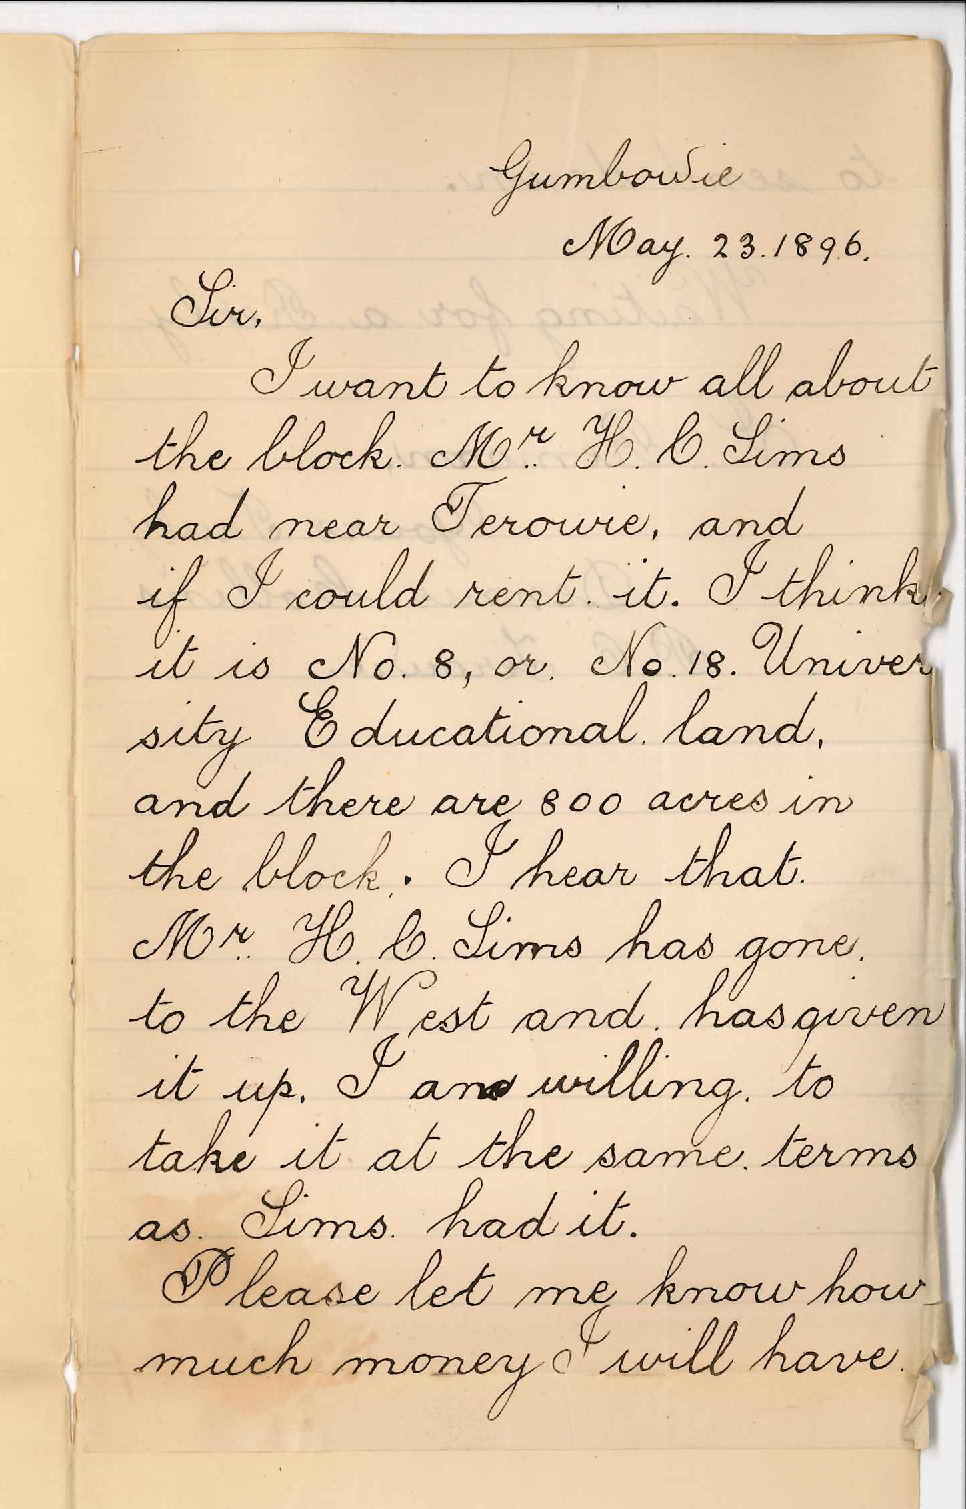 Gumbowie
May. 23. 1896.
Sir,
I want to know all about
the block. Mr. H. C. Sims
had near Terowie, and
if I could rent. it. I think
it is No. 8, or. No. 18. Univer
sity Educational. land,
and there are 800 acres in
the block. I hear that.
Mr. H. C. Sims has gone.
to the West and. has given
it up. I am willing. to
take it at the same. terms
as. Sims. had it.
Please let me know how
much money I will have.